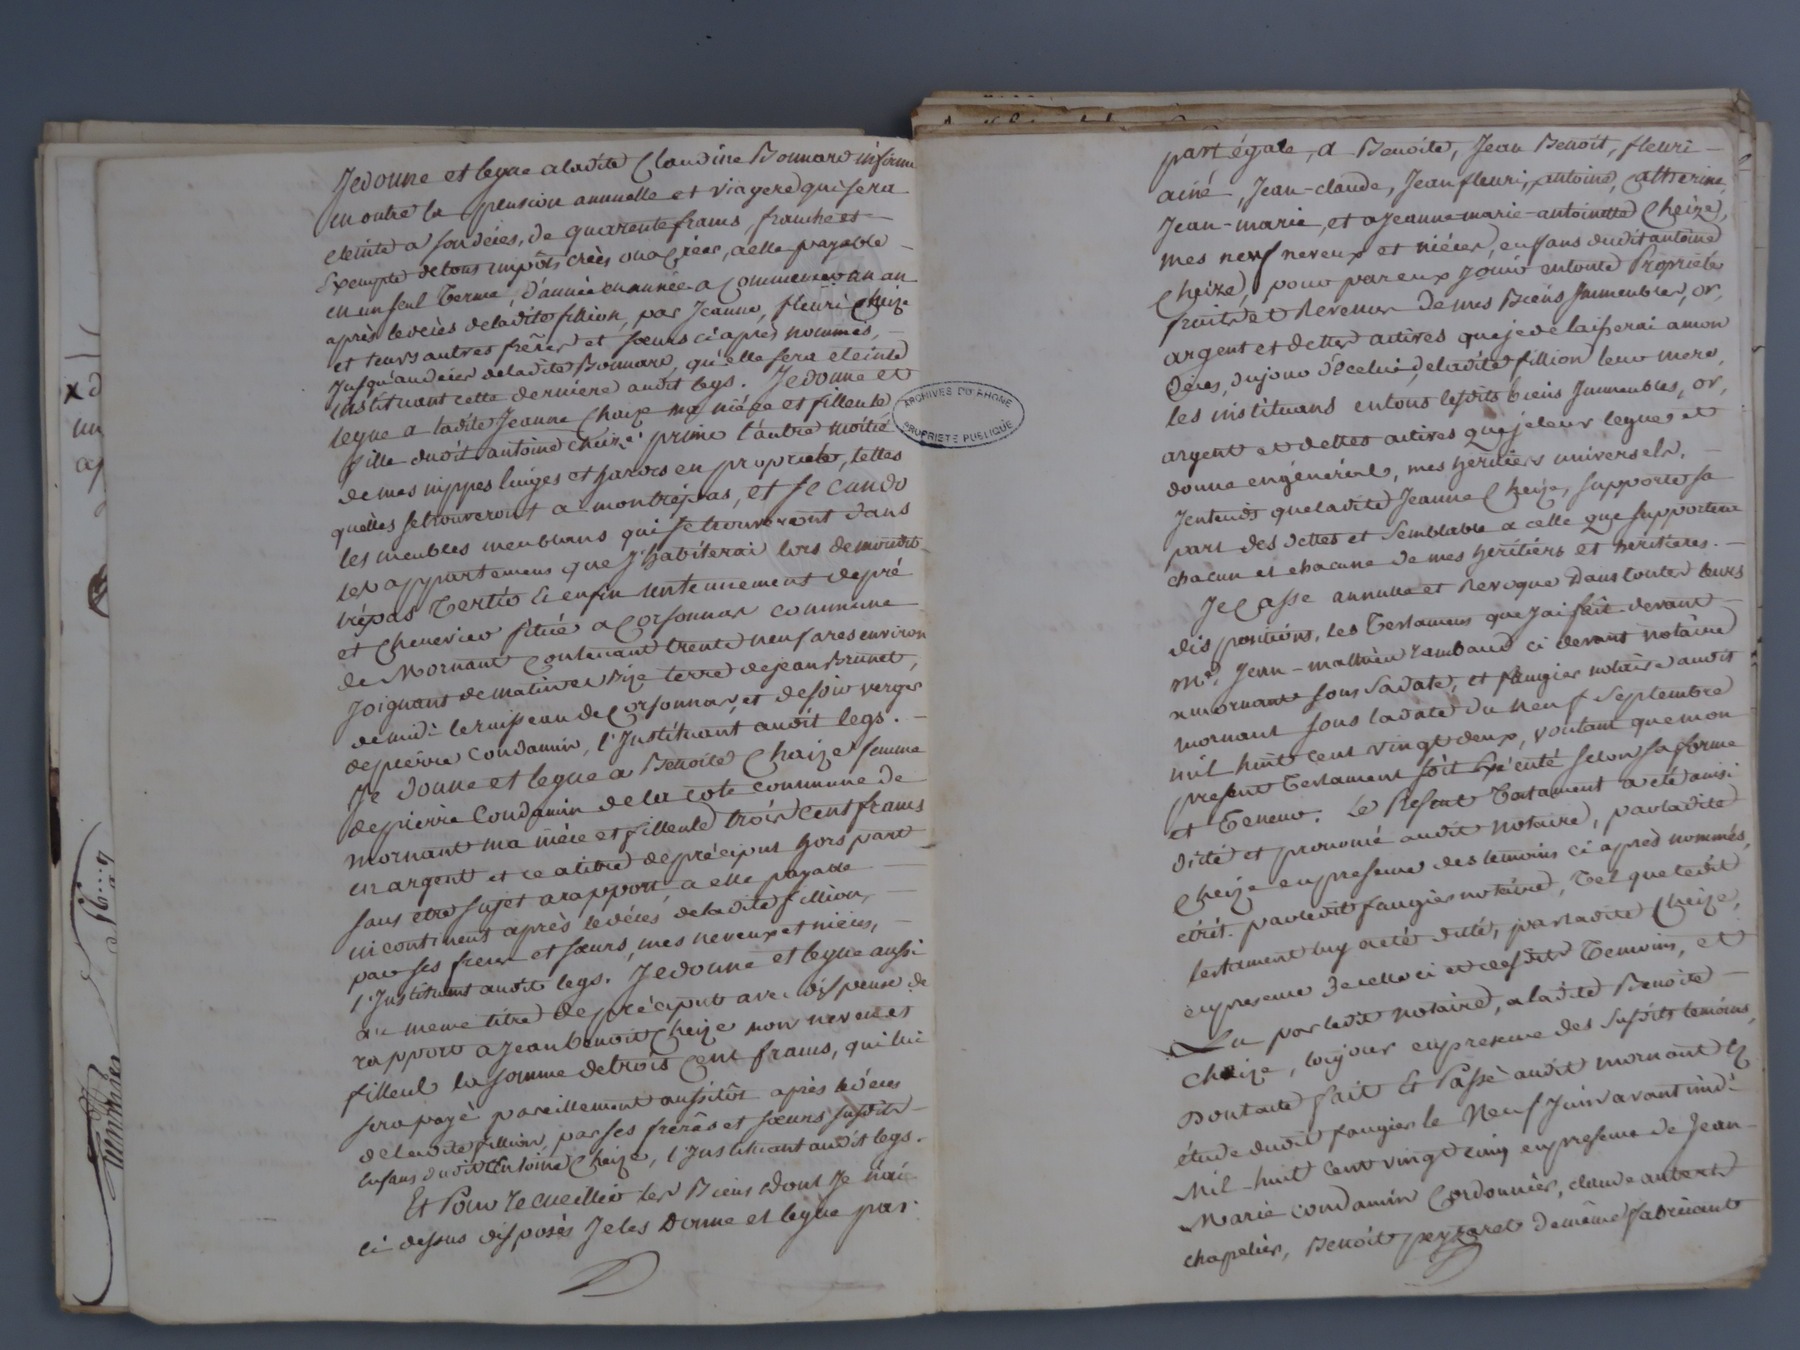 Je donne et legue a ladite Claudine Bonnard
en outre la pension annuelle et viagere qui sera
eteinte a son décès, de quarente francs, franche et
Exempte de tous impôts créés ou a Créer, a elle payable
en un seul terme, d'année en année a Commencer un an
après le décès de ladite fillion, par Jeanne, fleuri Cheize
et leurs autres frères et sœurs ci après nommés,
Jusqu'au décès de ladite Bonnard, qu'elle sera eteinte
instituant cette derniére audit legs. Je donne et
legue a ladite Jeanne Chaize ma niéce et filleule
fille dudit antoine Cheize primo l'autre moitié
de mes nippes linges et hardes en propriete, telles
quelles se trouveront a mon trépas, et secundo
les meubles meublans qui se trouveront dans
les appartemens que J'habiterai lors de mondit
trépas tertio Et enfin un tennement de pré
et Chenevier situé a Corsonnas commune
de Mornant Contenant trente neuf ares environ
Joignant de matin et bize terre de Jean Brunet,
de midi le ruisseau de Corsonnas, et de soir verger
de pierre Condamin, l'Instituant audit legs.
Je donne et legue a Benoite Chaize femme
de pierre Condamin de la cote commune de
mornant ma niéce et filleule trois cent francs
en argent et ce a titre de préciput hors part
sans etre sujet a rapport a elle payable
incontinent après le décés de ladite fillion,
par ses freres et sœurs, mes neveux et nieces,
l'Instituant audit legs. Je donne et legue aussi
au meme titre de préciput avec dispense de
rapport a Jean benoit Cheize mon neveu et
filleul la somme de trois Cent francs, qui lui
sera payé pareillement aussitôt après le décès
de ladite fillion, par ses frères et sœurs susdits
enfans dudit Antoine Cheize, l'Instituant audit legs.
Et Pour recueillir les Biens dont Je n'ai
ci dessus disposés Je les Donne et legue par
part égale, a Benoite, Jean Benoit, fleuri
ainé, Jean-claude, Jean fleuri, antoine, Catherine,
Jean-marie, et a Jeanne marie-antoinette Cheize,
mes neuf neveux et niéces, enfans dudit antoine
Cheize, pour par eux Jouir en toute Propriete
fruits et Revenus de mes Biens Immeubles, or,
argent et dettes actives que je delaisserai a mon
Déces, du jour de celui de ladite fillion leur mere,
les instituans en tous lesdits biens Immeubles, or,
argent et dettes actives que je leur legue et
donne en général, mes héritiers universels.
Jentends que ladite Jeanne Cheize, supporte sa
part des dettes et Semblable a celle que supportera
chacun et chacune de mes héritiers et héritieres.
Je Casse annulle et Revoque dans toutes leurs
dispositions, les testamens que J'ai fait devant
Me. Jean-mathieu rambaud ci devant notaire
a mornant sous sa date, et faugier notaire audit
mornant sous la date du neuf Septembre
mil huit cent vingt deux, voulant que mon
present testament soit Exécuté selon sa forme
et teneur. Le Present testament a eté ainsi
dicté et prononcé audit notaire, par ladite
Cheize en presence des temoins ci après nommés,
écrit par ledit faugier notaire, tel que ledit
testament luy a eté dicté, par ladite Cheize,
en presence de celle ci et desdits temoins, et
Lu par ledit notaire, a ladite Benoite
Cheize, toujour en presence des susdits temoins,
Dont acte fait Et Passé audit mornant En
étude dudit faugier le Neuf Juin avant midi
Mil-huit cent vingt cinq en presence de Jean-
Marie condamin Cordonnier, claude aubert
chapelier, Benoit peytaret de même fabricant
ARCHIVES DU RHONE
PROPRIETE PUBLIQUE